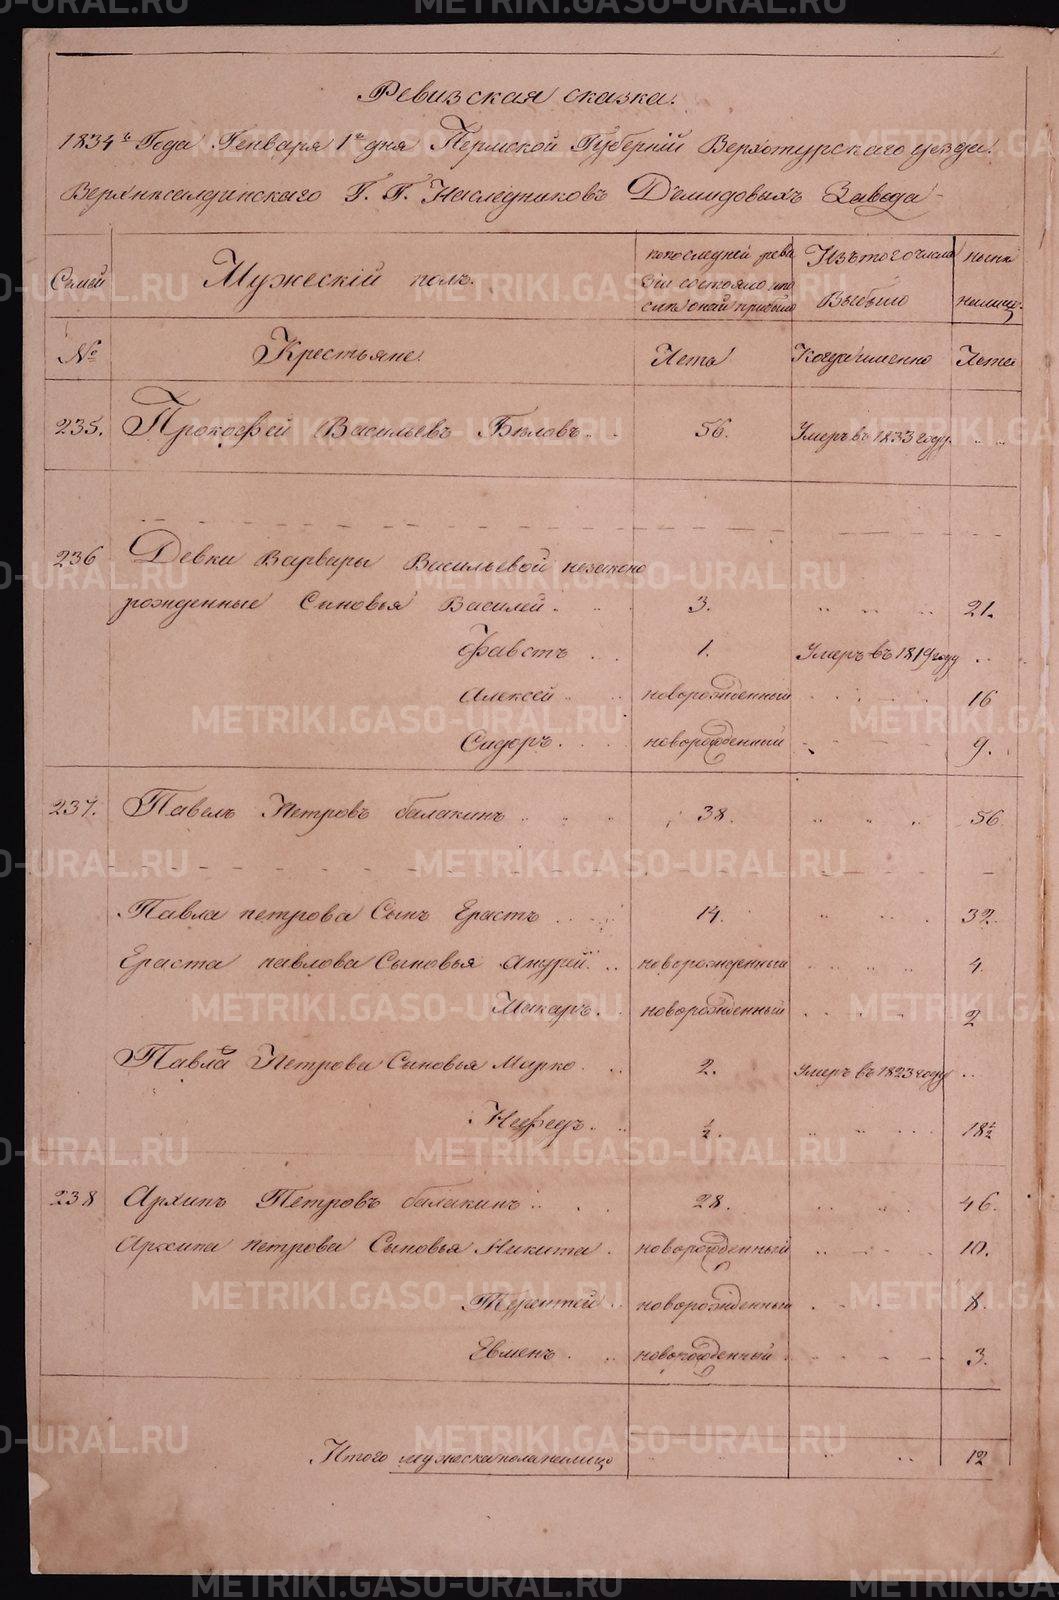 METRIKI.GASO-URAL.RU
Ревизская сказка.
1834го Года Генваря 1го дня Пермской Губернiи Верхотурского уезда.
Верхнесалдинского Г. Г. Наследниковъ Демидовыхъ Завода
Семей Мужескiй полъ. попоследней реви Изътогочисла ныне
зiи состояло ипо
Выбыло налицо.
слѣ оной прибыло
№ Крестьяне. Лета Когда именно Лета
235. Прокофей Васильевъ Бѣловъ 56. Умеръ въ 1833 году.
236 Девки Варвары Васильевой незаконо
рожденные Сыновья Василей 3. 21.
Фавстъ 1. Умеръ въ 1819 году
Алексей новорожденный 16
Сидоръ новорожденный 9.
237. Павелъ Петровъ балакинъ 38. 56
Павла петрова Сынъ Ерастъ 14. 32
Ераста павлова Сыновья андрей новорожденный 4.
Макаръ новорожденный 2
Павла Петрова Сыновья Марко 2. Умеръ въ 1823 году
Нефедъ ½. 18½
238 Архипъ Петровъ балакинъ 28. 46.
Архипа петрова Сыновья Никита новорожденный 10.
Терентей новорожденный 8.
Евменъ новорожденный 3.
Итого мужеска пола налицо 12